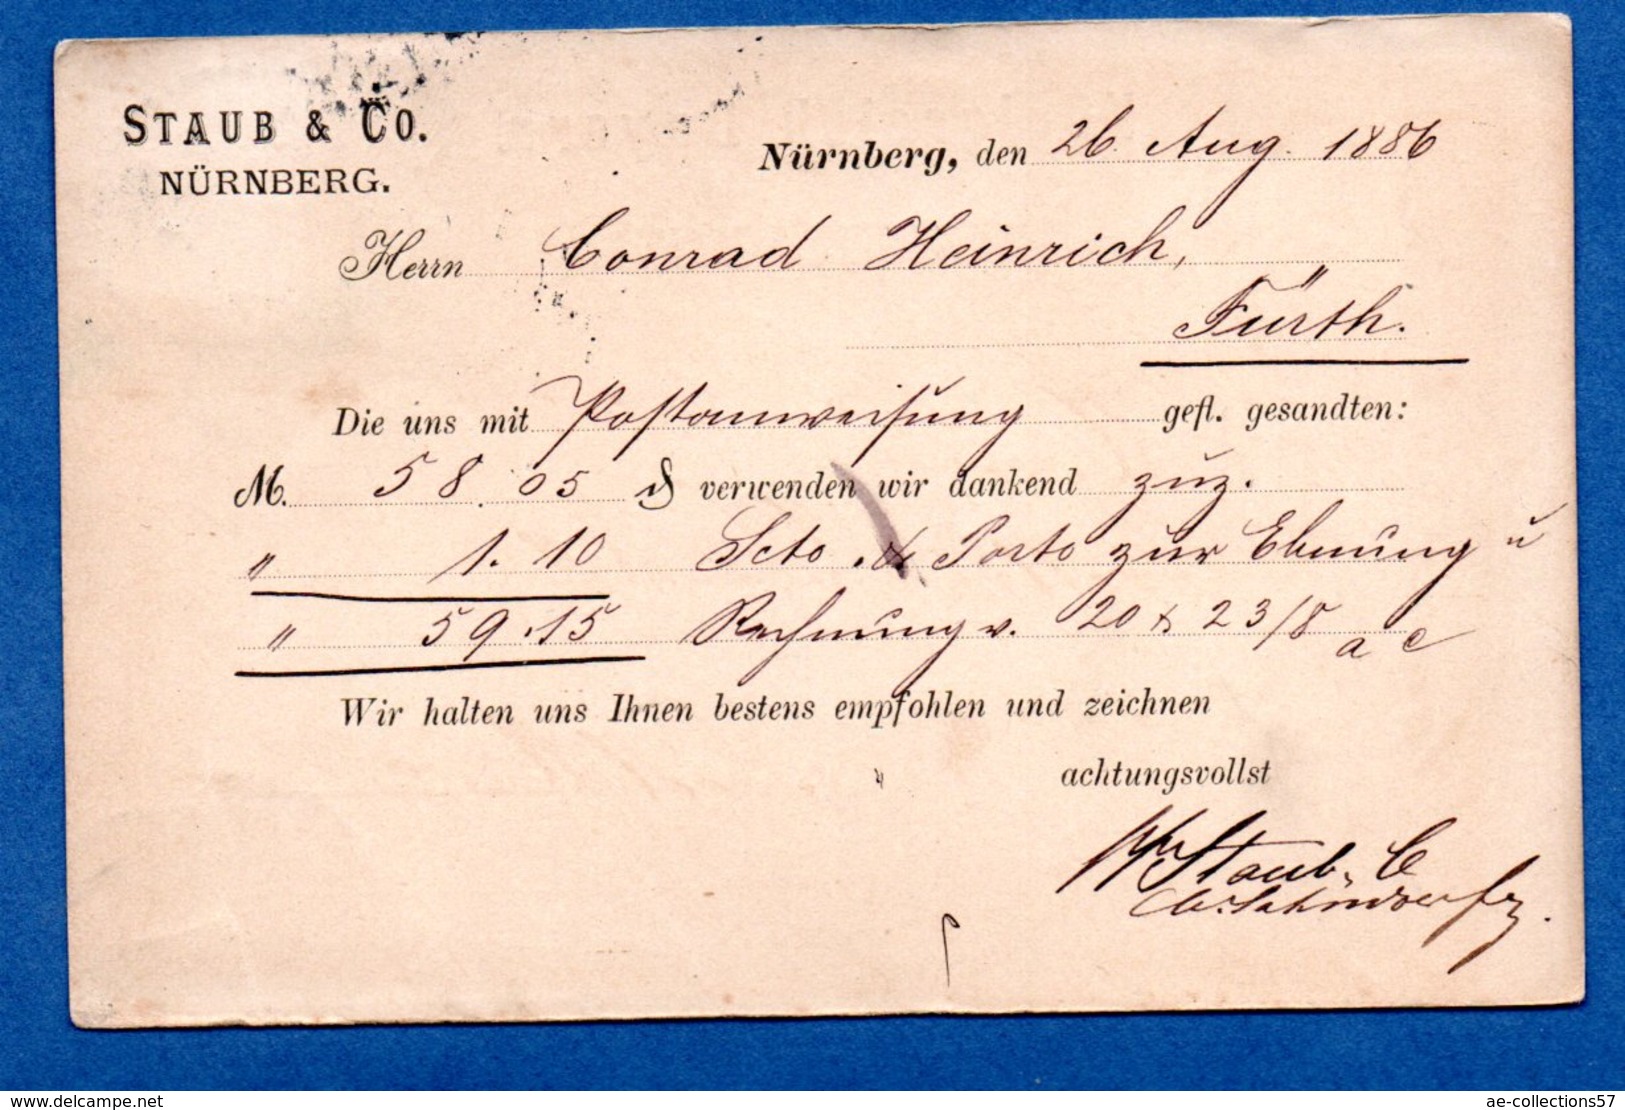 STAUB & CO.
NÜRNBERG.
Nürnberg, den 26 Aug. 1886
Herrn Conrad Heinrich,
Fürth.
Die uns mit Postanweisung gefl. gesandten:
M. 58.05 ₰ verwenden wir dankend zuz.
" 1.10 Scto & Porto zur Ebnung u
" 59.15 Rechnung v. 20 & 23/8 a c
Wir halten uns Ihnen bestens empfohlen und zeichnen
achtungsvollst
Staub & C
ae-collections57
www.delcampe.net